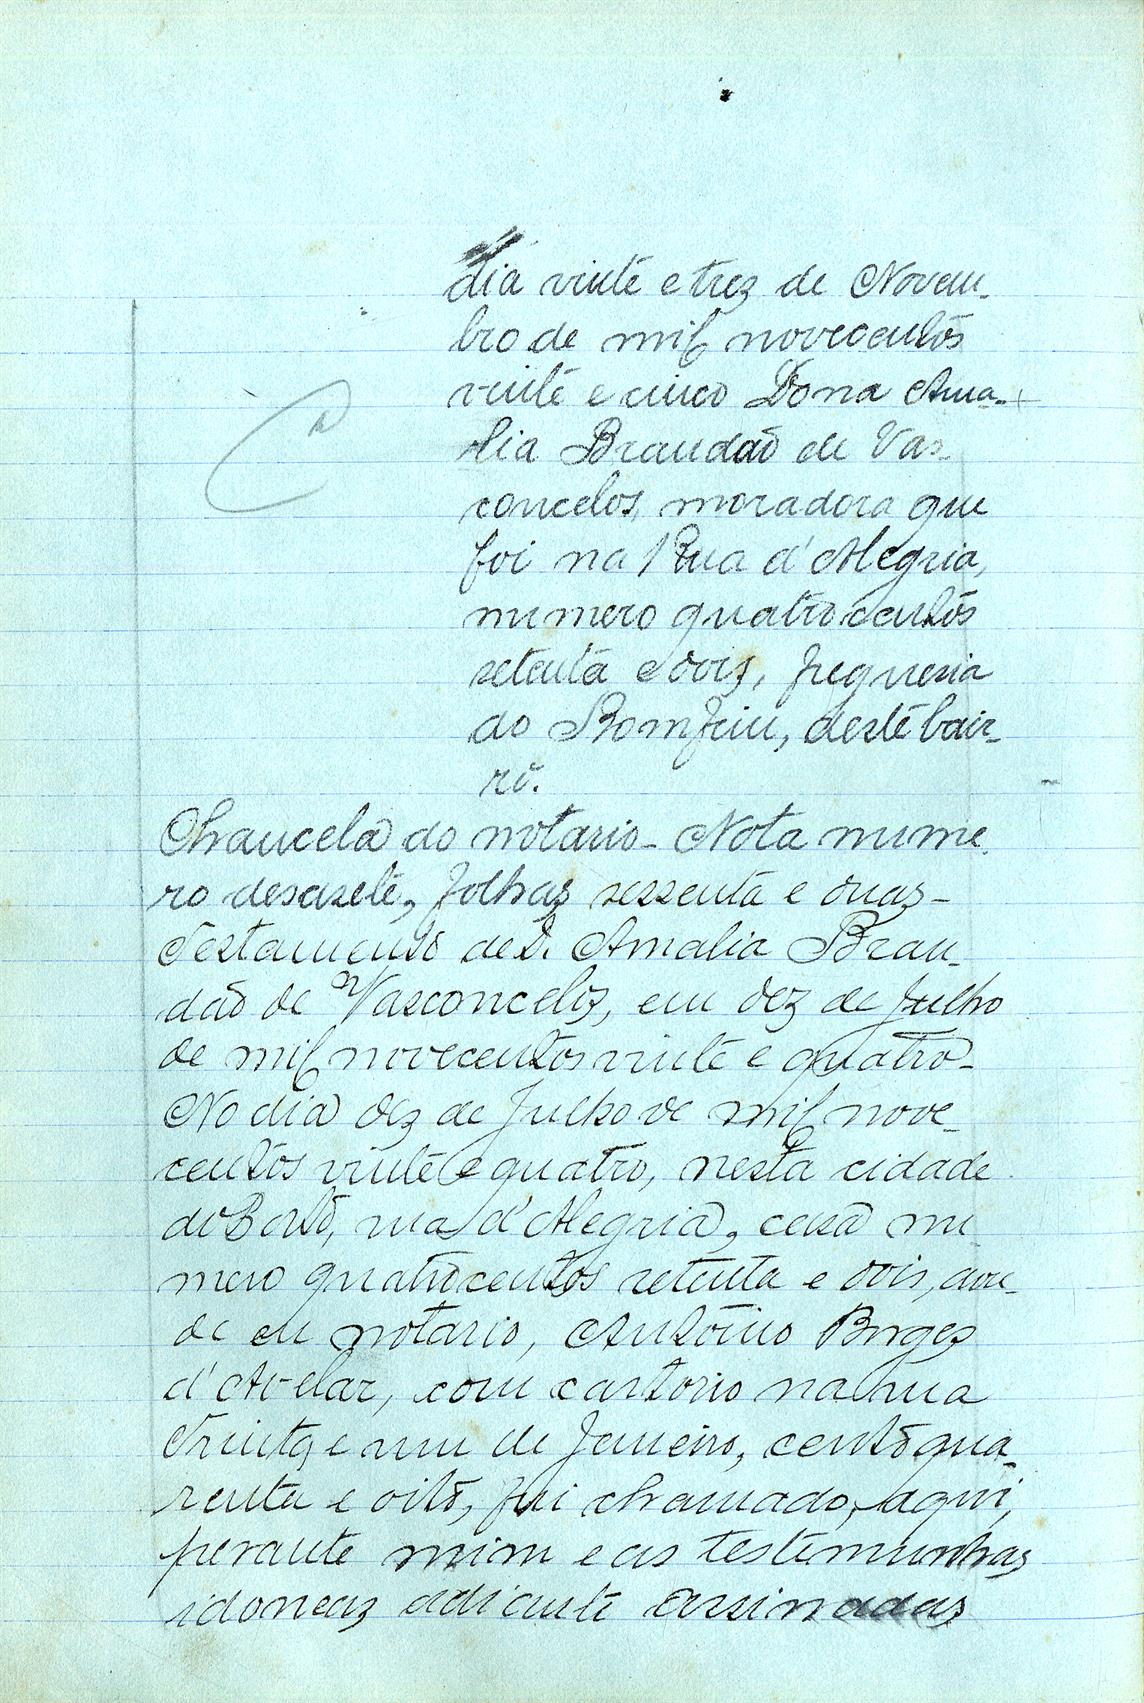 dia vinte e trez de Novem-
bro de mil novecentos
vinte e cinco Dona Ama-
lia Brandão de Vas-
concelos, moradora que
foi na Rua d'Alegria,
numero quatrocentos
setenta e dois, freguesia
do Bomfim, deste bair-
ro.
Chancela do notario - Nota nume-
ro desasete, folhas sessenta e duas -
Testamento de D. Amalia Bran-
dão de Vasconcelos, em dez de Julho
de mil novecentos vinte e quatro -
No dia dez de Julho de mil nove-
centos vinte e quatro, nesta cidade
do Porto, rua d'Alegria, casa nu-
mero quatrocentos setenta e dois, aon-
de eu notario, António Borges
d'Avelar, com cartorio na rua
Trinta e um de Janeiro, cento qua-
renta e oito, fui chamado, aqui,
perante mim e as testemunhas
idoneas adiante assinadas